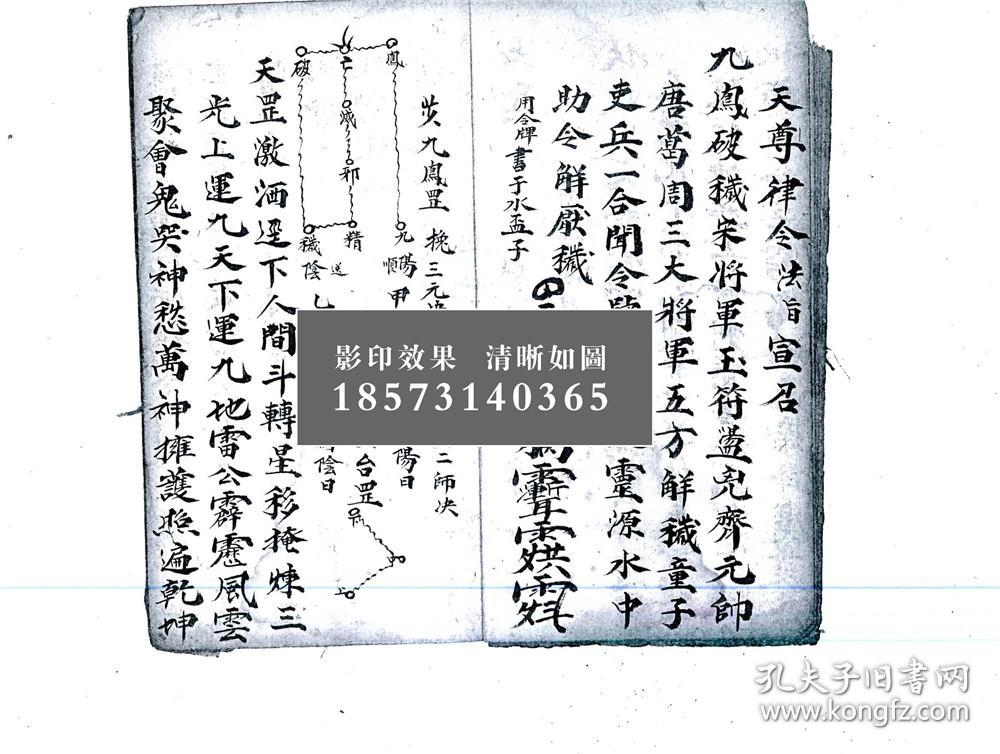 天尊律令法旨宣召
九鳳破穢宋將軍玉符盪兇齊元帥
唐葛周三大將軍五方解穢童子
吏兵一合聞令
靈源水中
助令解厭穢
用令牌書于水盂子
步九鳳罡
挽三元
二師决
鳳
九陽
順
甲
陽日
亡
滅
邪
精
送
破
穢陰
乙
陰日
台罡
天罡激洒逆下人間斗轉星移掩煉三
光上運九天下運九地雷公霹靂風雲
聚會鬼哭神愁萬神擁護照遍乾坤
影印效果 清晰如圖
18573140365
孔夫子旧书网
www.kongfz.com